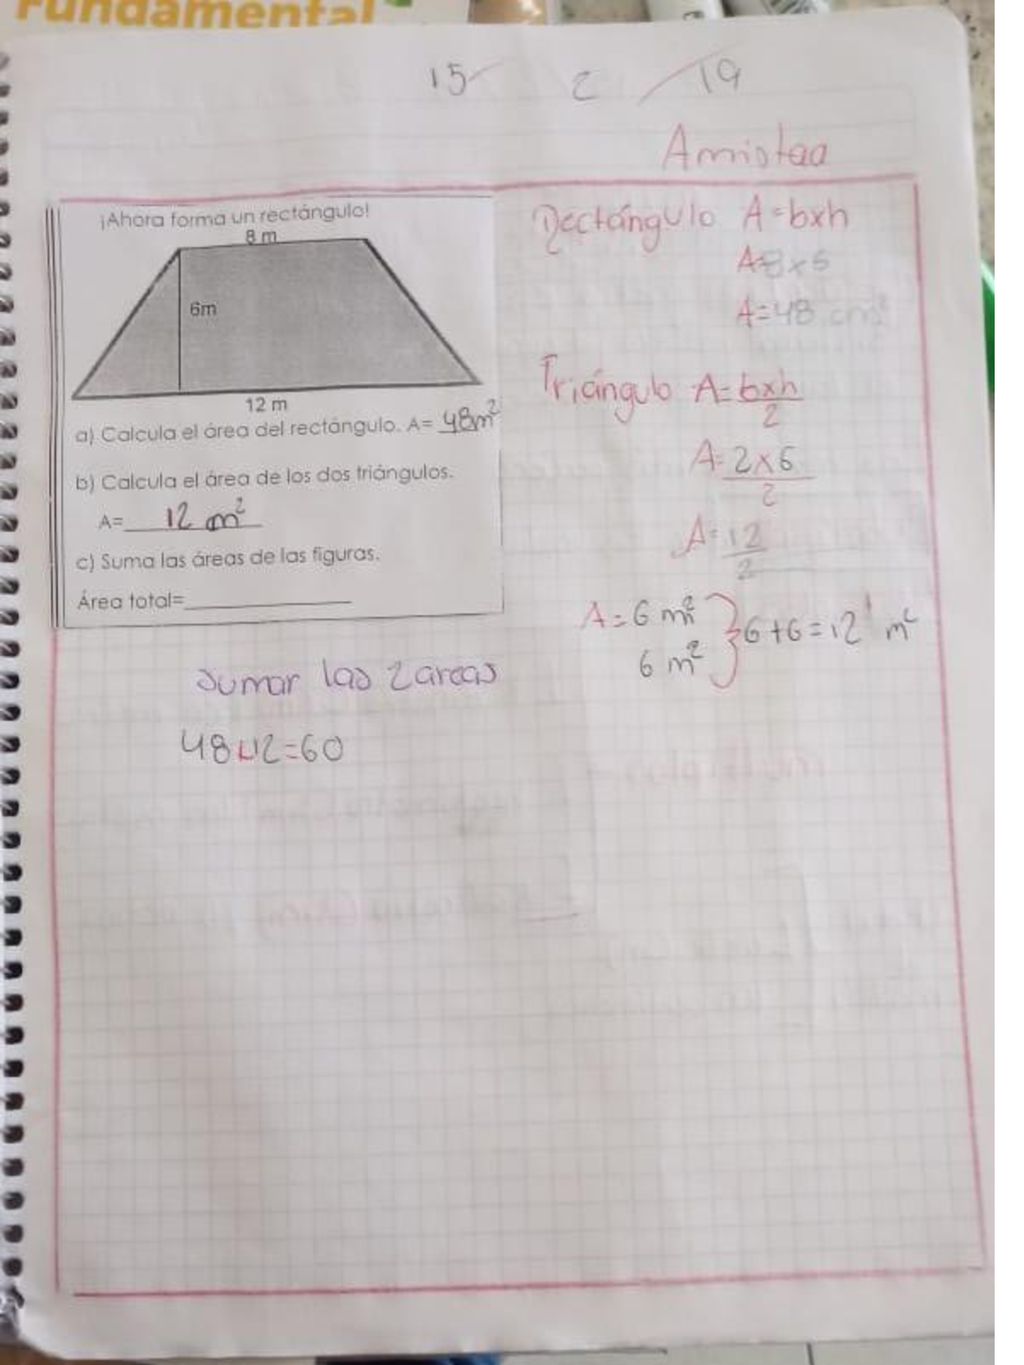 Fundamental
15 / 2 / 19
Amistad
¡Ahora forma un rectángulo!
8 m
6m
12 m
a) Calcula el área del rectángulo. A= 48m²
b) Calcula el área de los dos triángulos.
A= 12 m²
c) Suma las áreas de las figuras.
Área total=
Rectángulo A=bxh
A=8x6
A=48 cm²
Triángulo A=bxh
2
A=2x6
2
A=12
2
A=6 m²
6 m²
6+6=12 m²
Sumar las 2 areas
48+12=60